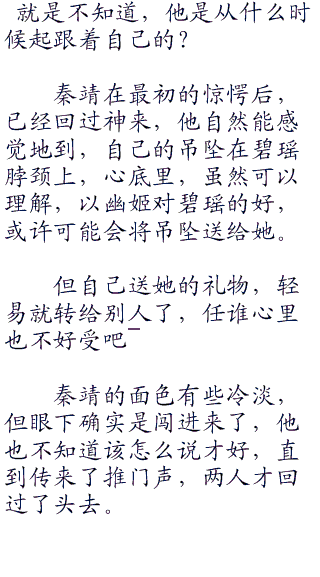 就是不知道，他是从什么时
候起跟着自己的？
秦靖在最初的惊愕后，
已经回过神来，他自然能感
觉地到，自己的吊坠在碧瑶
脖颈上，心底里，虽然可以
理解，以幽姬对碧瑶的好，
或许可能会将吊坠送给她。
但自己送她的礼物，轻
易就转给别人了，任谁心里
也不好受吧¯
秦靖的面色有些冷淡，
但眼下确实是闯进来了，他
也不知道该怎么说才好，直
到传来了推门声，两人才回
过了头去。